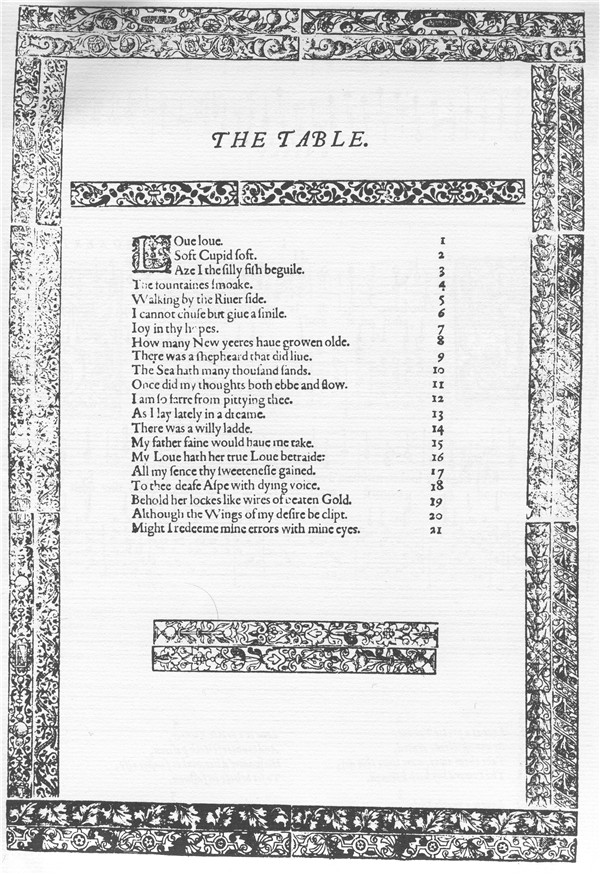 THE TABLE.
LOue loue. 1
Soft Cupid soft. 2
Aze I the silly fish beguile. 3
The fountaines smoake. 4
Walking by the Riuer side. 5
I cannot chuse but giue a smile. 6
Ioy in thy hopes. 7
How many New yeeres haue growen olde. 8
There was a shepheard that did liue. 9
The Sea hath many thousand sands. 10
Once did my thoughts both ebbe and flow. 11
I am so farre from pittying thee. 12
As I lay lately in a dreame. 13
There was a willy ladde. 14
My father faine would haue me take. 15
My Loue hath her true Loue betraide: 16
All my sence thy sweetenesse gained. 17
To thee deafe Aspe with dying voice. 18
Behold her lockes like wires of beaten Gold. 19
Although the Wings of my desire be clipt. 20
Might I redeeme mine errors with mine eyes. 21